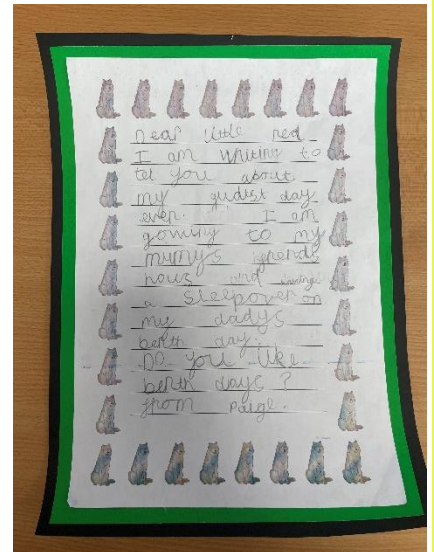 Dear little red
I am writing to
tel you about
my gudist day
ever. I am
gowing to my
mumys frends
hous and having
a sleepover on
my dadys
berth day.
Do you like
berth days?
from Paige.